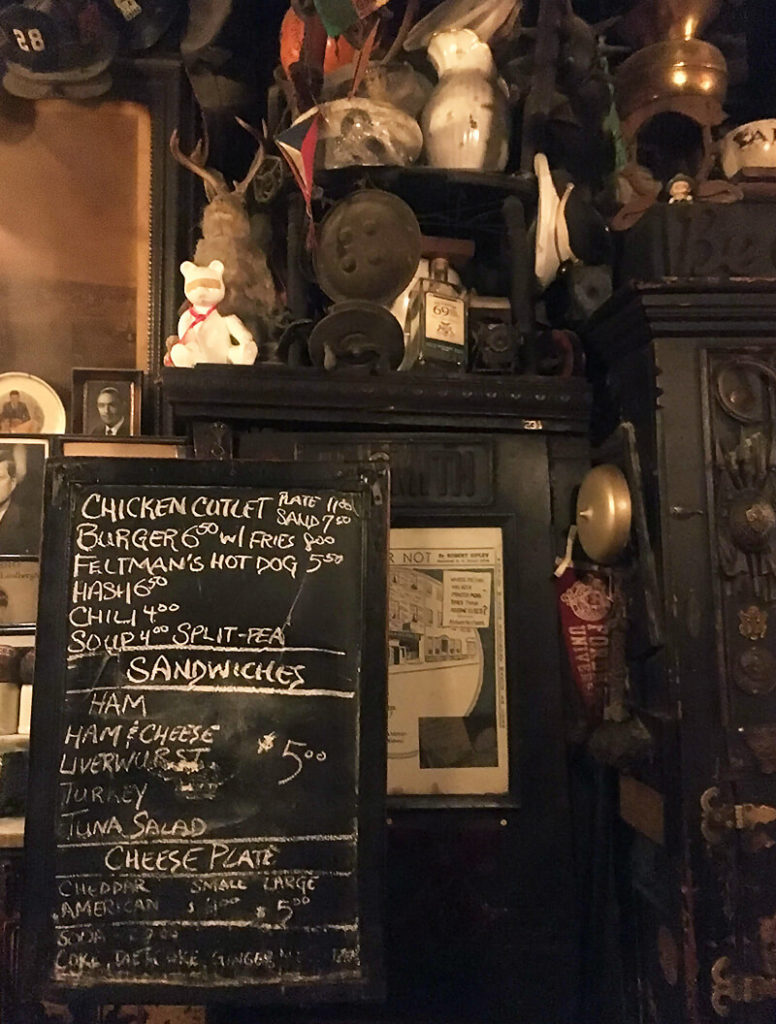 28
69
CHICKEN CUTLET PLATE 11.00
SAND 7 50
BURGER 6 50 W/ FRIES 8 00
FELTMAN'S HOT DOG 5 50
HASH 6 50
CHILI 4 00
SOUP 4 00 SPLIT-PEA
SANDWICHES
HAM
HAM & CHEESE
LIVERWURST $5 00
TURKEY
TUNA SALAD
CHEESE PLATE
CHEDDAR SMALL LARGE
AMERICAN $4 00 $5 00
SODA
COKE, DIET COKE, GINGER
OR NOT By ROBERT RIPLEY
Lindbergh